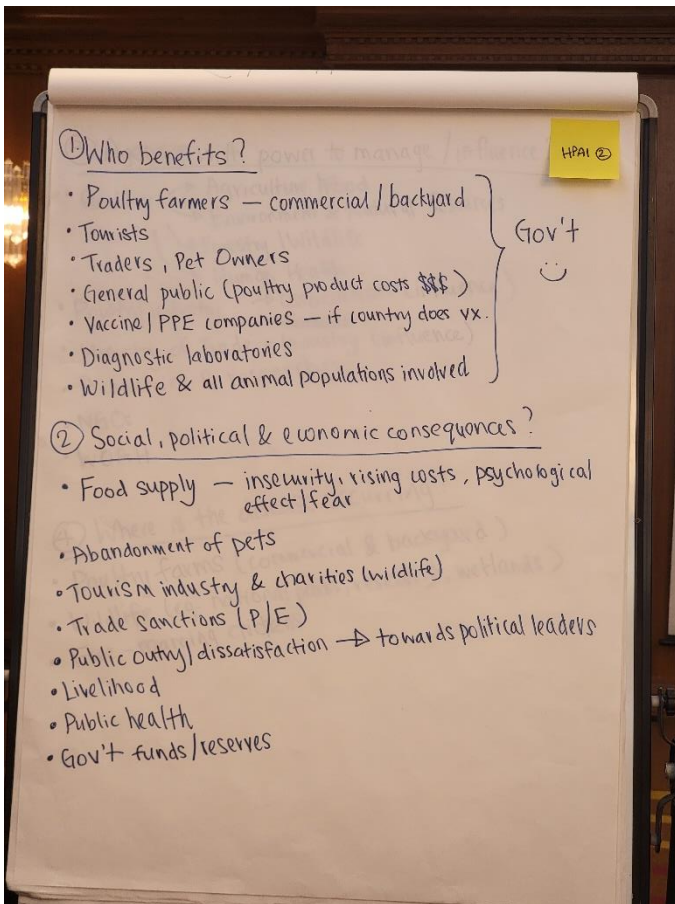 ① Who benefits?
HPAI ②
• Poultry farmers – commercial / backyard
• Tourists
• Traders, Pet Owners
• General public (poultry product costs $$$)
• Vaccine / PPE companies – if country does vx.
• Diagnostic laboratories
• Wildlife & all animal populations involved
Gov't
② Social, political & economic consequences?
• Food supply – insecurity, rising costs, psychological
effect/fear
• Abandonment of pets
• Tourism industry & charities (wildlife)
• Trade sanctions (P/E)
• Public outry/dissatisfaction → towards political leaders
• Livelihood
• Public health
• Gov't funds/reserves